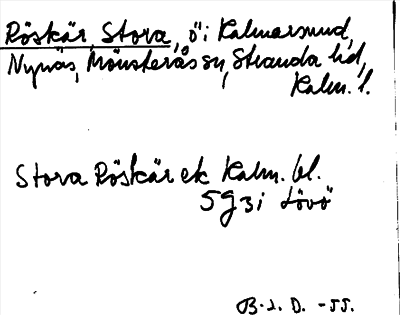 Röskär, Stora, ö i Kalmarsund,
Nynäs, Mönsterås sn, Stranda hd,
Kalm. l.
Stora Röskär ek Kalm. bl.
5 g 3 i Lövö
B. J. D. -55.